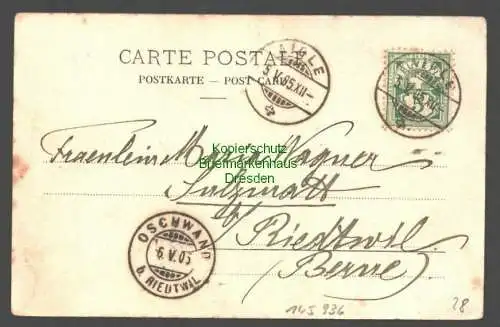 CARTE POSTALE
POSTKARTE – POST CARD
AIGLE
5.V.05.XII-
AIGLE
Kopierschutz
Briefmarkenhaus
Dresden
Fraeulein Maria Wagner
Sulzmatt
b/ Riedtwil
(Berne)
OSCHWAND
6.V.05
b. RIEDTWIL
145 936
28